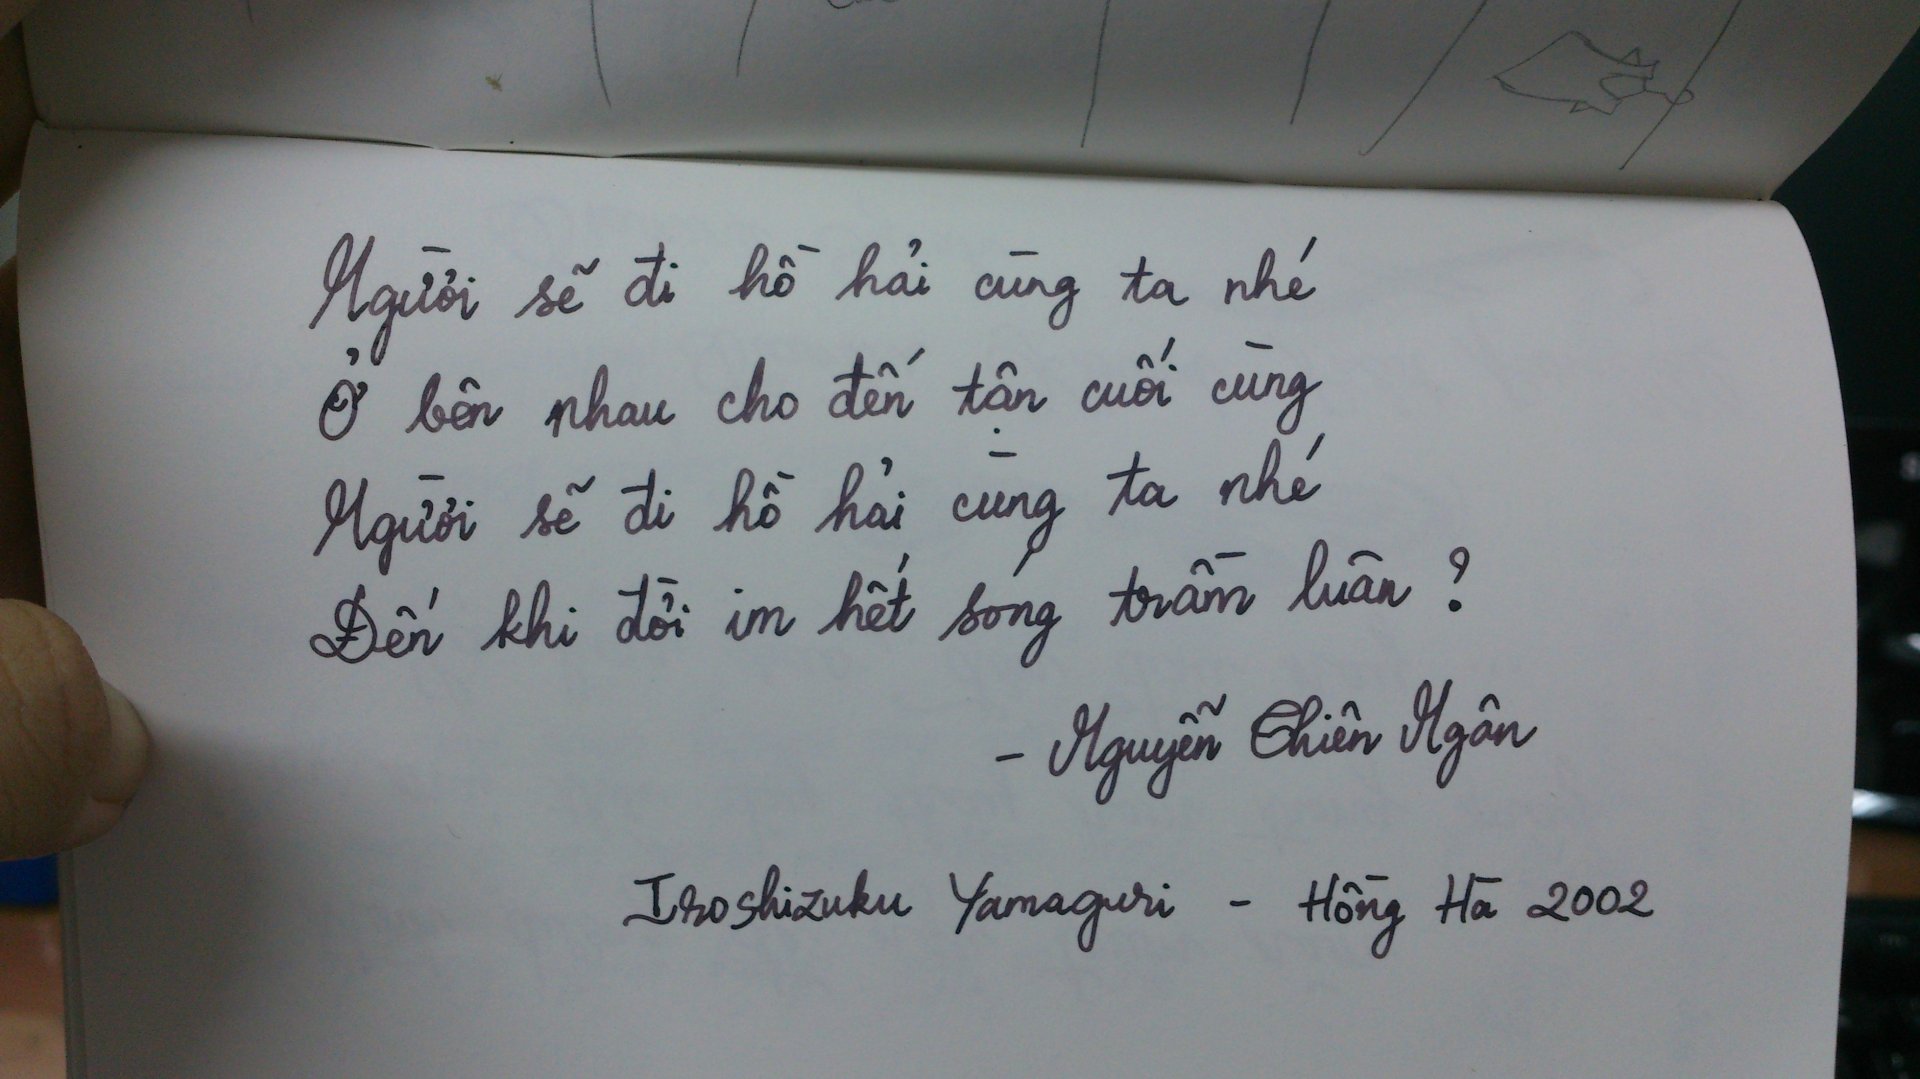 Người sẽ đi hồ hải cùng ta nhé
Ở bên nhau cho đến tận cuối cùng
Người sẽ đi hồ hải cùng ta nhé
Đến khi đời im hết sóng trầm luân ?
- Nguyễn Thiên Ngân
Iroshizuku Yamaguri - Hồng Hà 2002